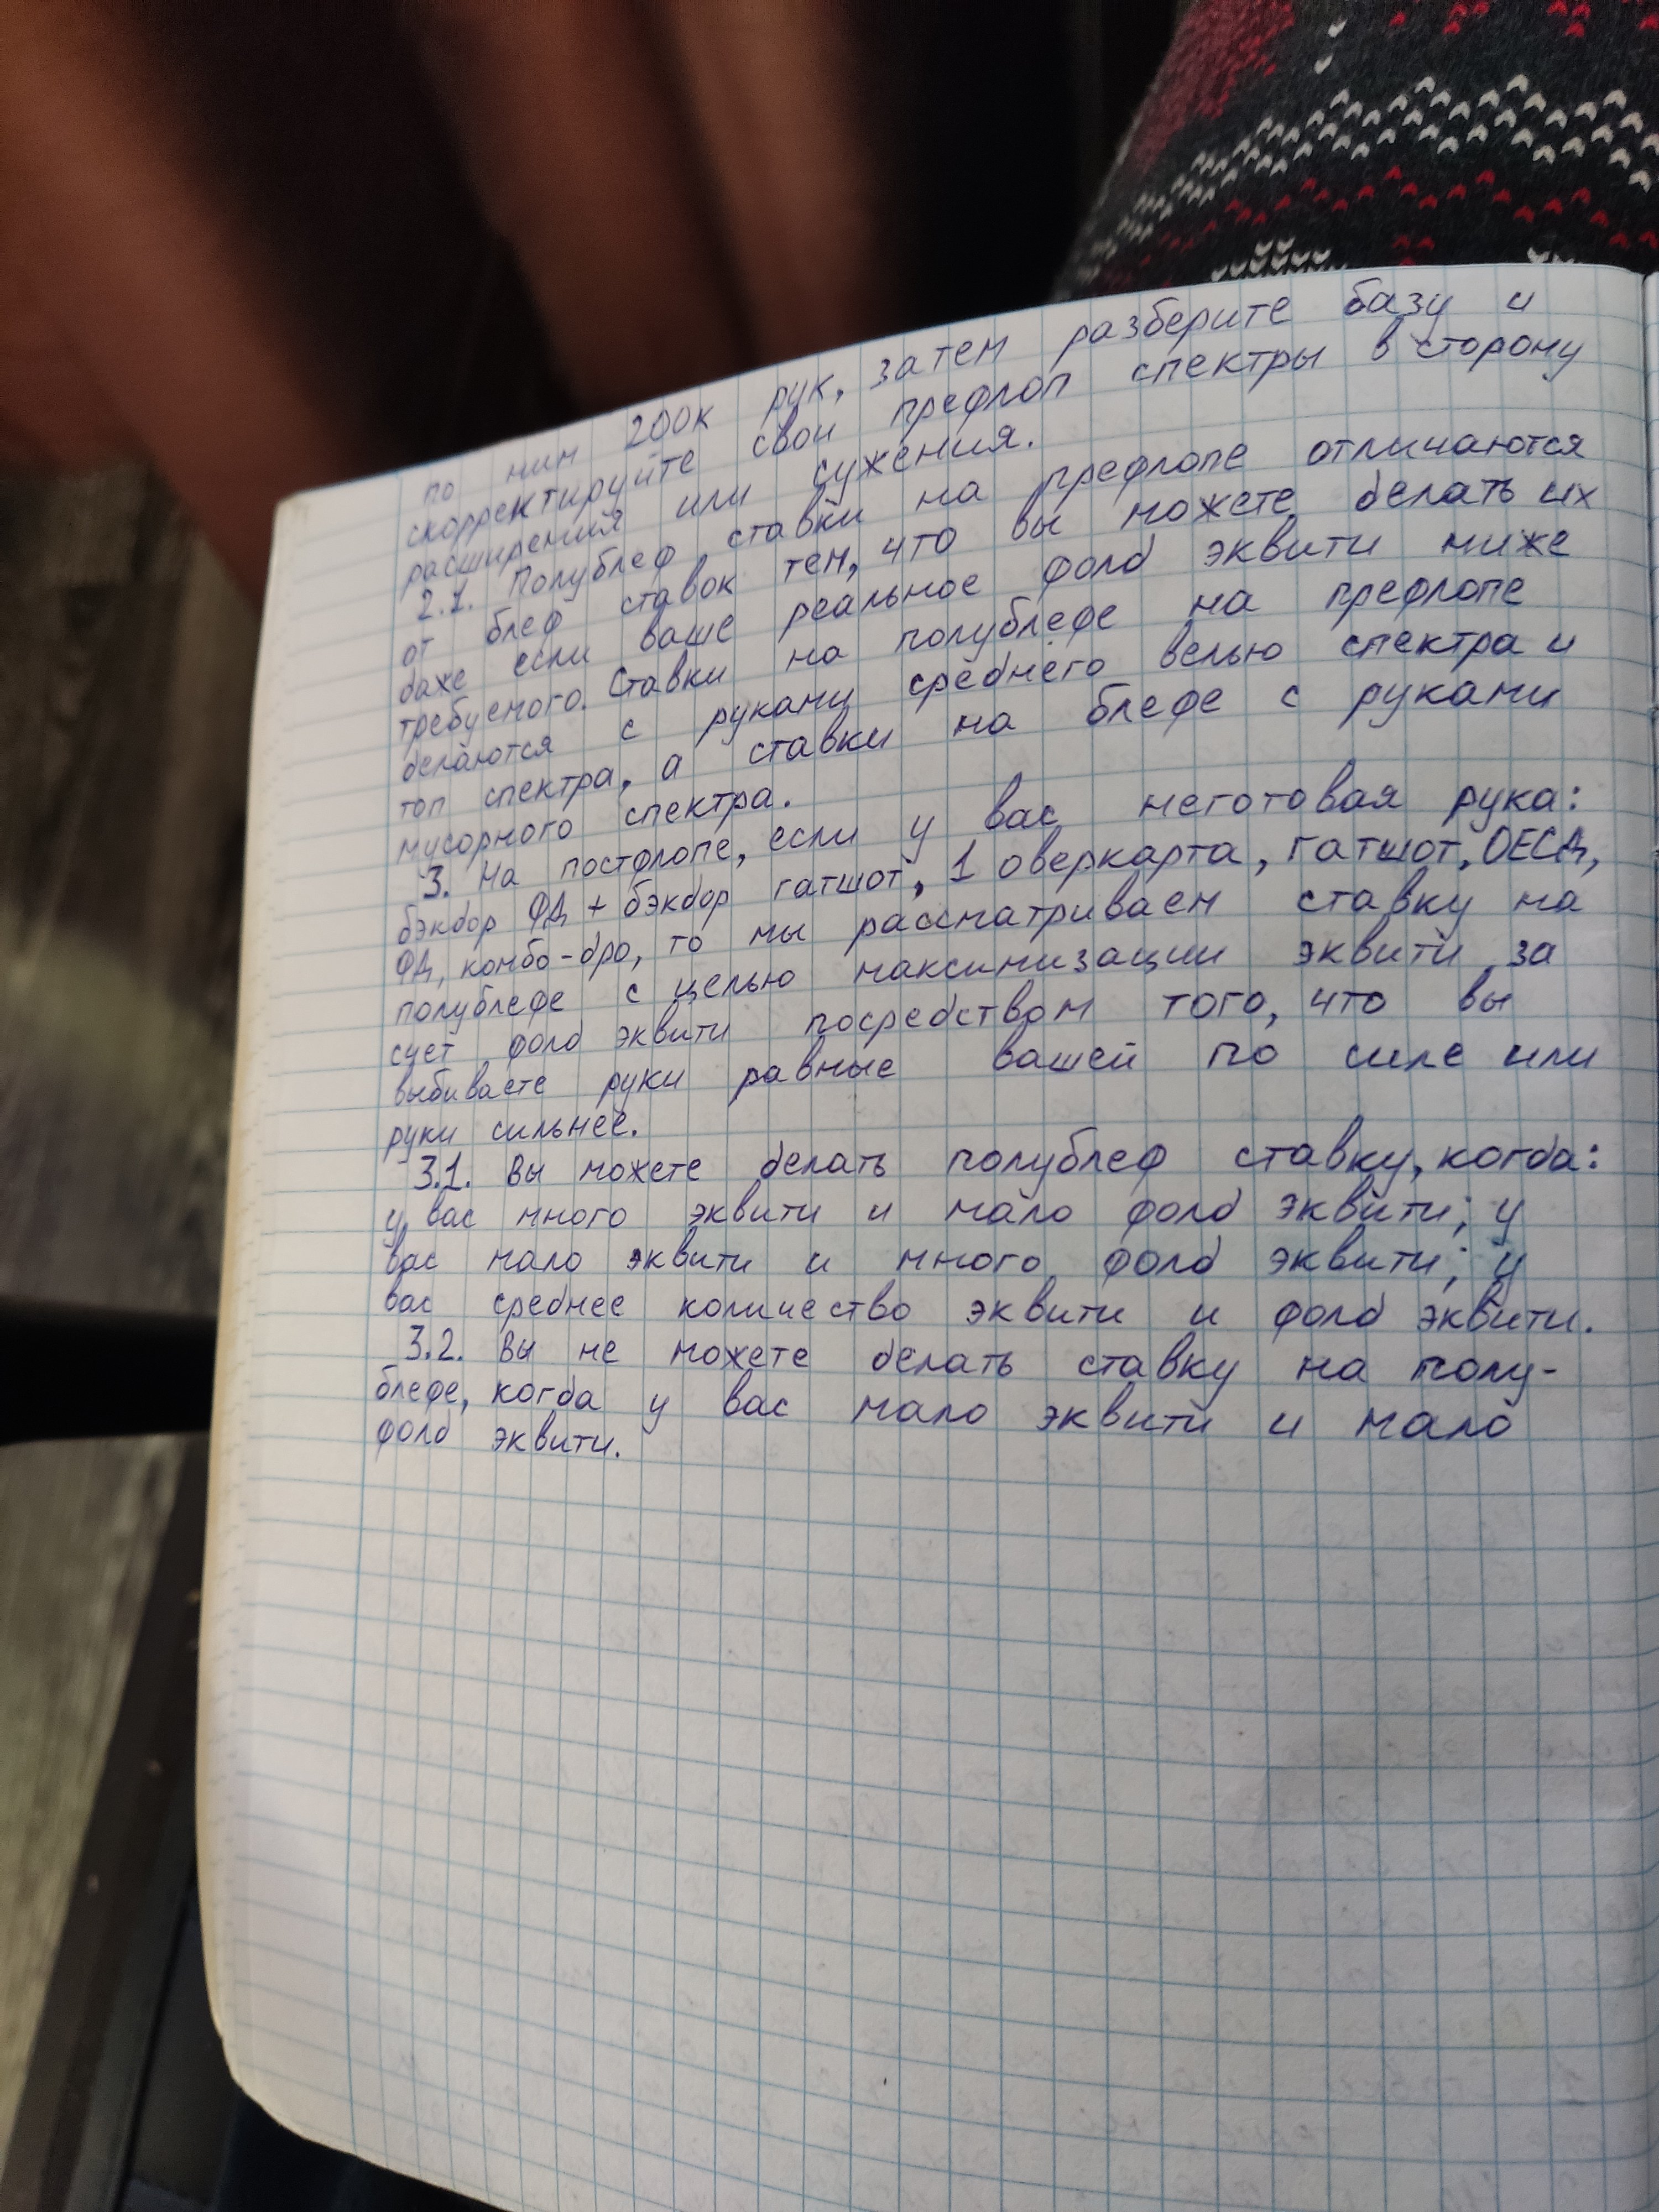 по ним 200к рук, затем разберите базу и
скорректируйте свои префлоп спектры в сторону
расширения или сужения.
2.1. Полублеф ставки на префлопе отличаются
от блеф ставок тем, что вы можете делать их
даже если ваше реальное фолд эквити ниже
требуемого. Ставки на полублефе на префлопе
делаются с руками среднего велью спектра и
топ спектра, а ставки на блефе с руками
мусорного спектра.
3. На постфлопе, если у вас неготовая рука:
бэкдор ФД + бэкдор гатшот, 1 оверкарта, гатшот, ОЕСД,
ФД, комбо-дро, то мы рассматриваем ставку на
полублефе с целью максимизации эквити за
счет фолд эквити посредством того, что вы
выбиваете руки равные вашей по силе или
руки сильнее.
3.1. Вы можете делать полублеф ставку, когда:
у вас много эквити и мало фолд эквити; у
вас мало эквити и много фолд эквити; у
вас среднее количество эквити и фолд эквити.
3.2. Вы не можете делать ставку на полу-
блефе, когда у вас мало эквити и мало
фолд эквити.